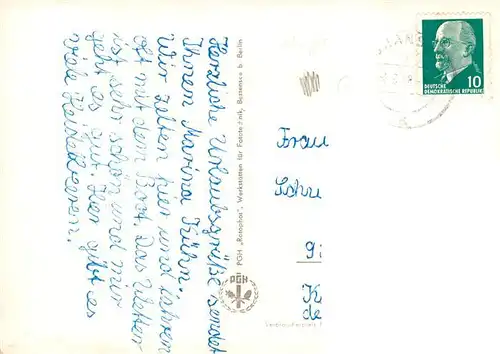 Herzliche Urlaubsgrüße sendet
Ihnen Marina Kühn.
Wir zelten hier und fahren
oft mit dem Boot. Das Wetter
ist sehr schön und mir
geht es gut. Hier gibt es
viele Heidelbeeren.
PGH „Rotophot", Werkstätten für Fototechnik, Bestensee b. Berlin
PGH
10
DEUTSCHE
DEMOKRATISCHE REPUBLIK
Frau
Schu
gi
K
de